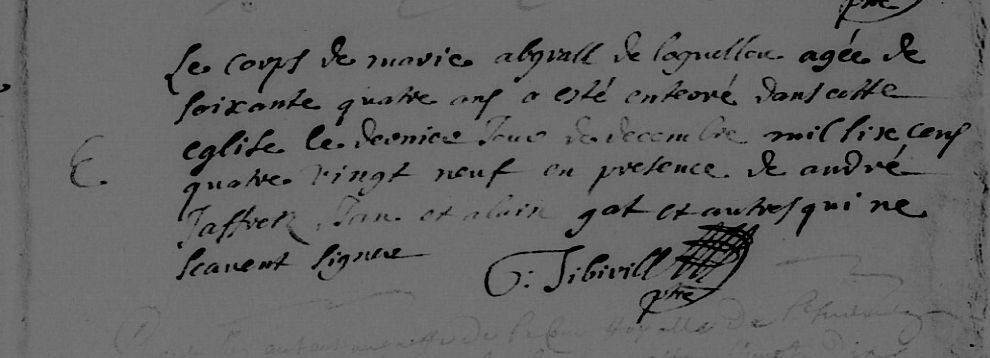 Le corps de marie abgrall de loguellou agée de
soixante quatre ans a esté enterré dans cette
eglise le dernier Jour de decembre mil sixe cens
quatre vingt neuf en presence de andré
Jaffrez Jan et alain gat et autres qui ne
scavent signer
G: Tibivill
ptre